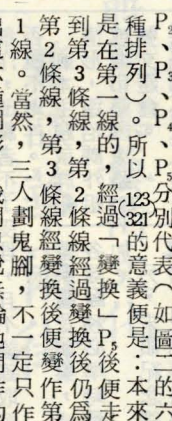 P₂、P₃、P₄、P₅分別代表（如圖二的六
種排列）。所以(123
321)的意義便是：本來
是在第一線的，經過「變換」P₅後便走
到第3條線，第2條線經過變換後仍爲
第2條線，第3條線經變換後便變作第
1線。當然，三人劃鬼腳，不一定只作